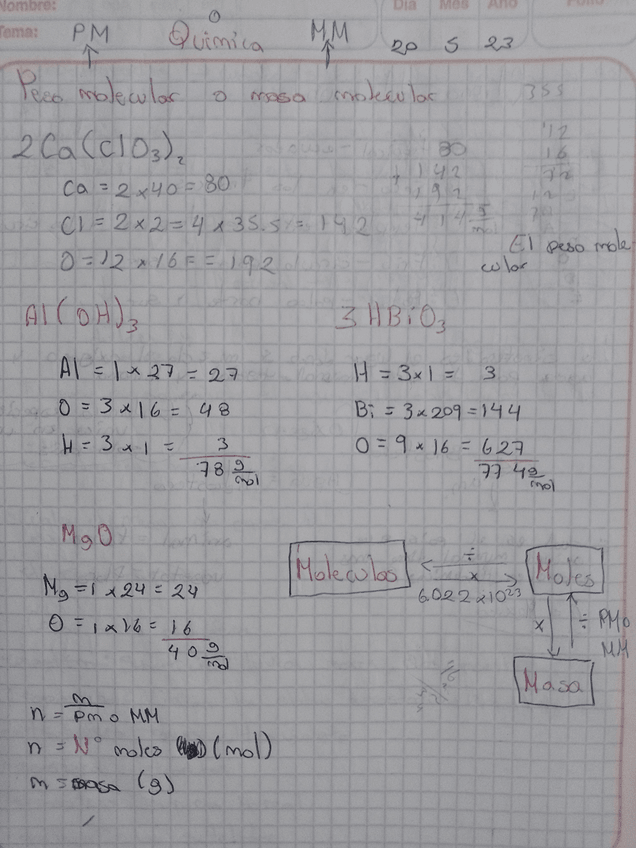 Nombre:
Tema:
Dia Mes Año Folio
PM o MM
Química
20 5 23
Peso molecular o masa molecular
2Ca(ClO3)2
Ca = 2 x 40 = 80
Cl = 2 x 2 = 4 x 35.5 = 142
O = 12 x 16 = = 192
80
+ 142
192
414 g/mol
355
12
16
72
El peso mole
cular
Al(OH)3
Al = 1 x 27 = 27
O = 3 x 16 = 48
H = 3 x 1 = 3
78 g/mol
3HBiO3
H = 3x1 = 3
Bi = 3x209 = 144
O = 9 x 16 = 627
774 g/mol
MgO
Mg = 1 x 24 = 24
O = 1 x 16 = 16
40 g/mol
Moleculas ÷ Moles
x
6.022x10^23
x ÷ PM o
MM
Masa
n = m/Pm o MM
n = N° moles (mol)
m = masa (g)